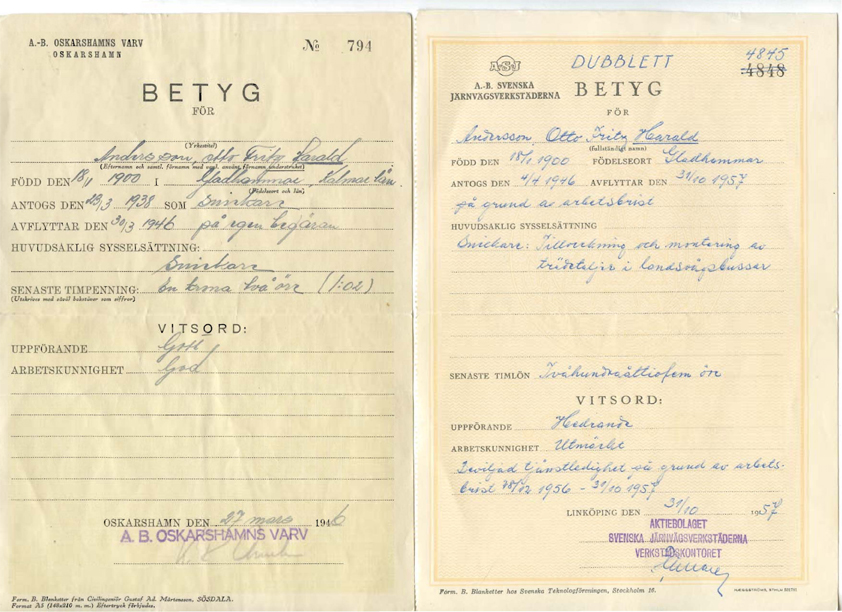 A.-B. OSKARSHAMNS VARV
OSKARSHAMN
№ 794
BETYG
FÖR
(Yrkestitel)
Andersson, Otto Fritz Harald
(Efternamn och samtl. förnamn med angivande)
FÖDD DEN 18/1 1900 I Gladhammar, Kalmar län.
(Födelseort och län)
ANTOGS DEN 23/3 1938 SOM Snickare
AVFLYTTAR DEN 30/3 1946 på egen begäran
HUVUDSAKLIG SYSSELSÄTTNING:
Snickare
SENASTE TIMPENNING: En krona två öre (1:02)
(Utskrives med såväl bokstäver som siffror)
VITSORD:
UPPFÖRANDE Gott
ARBETSKUNNIGHET God
OSKARSHAMN DEN 27 mars 1946
A. B. OSKARSHAMNS VARV
Form. B. Blanketter från Civilingeniör Gustaf Ad. Mårtensson, SÖSDALA.
Format A5 (148x210 m. m.) Eftertryck förbjudes.
ASJ
DUBBLETT
4845
4848
A.-B. SVENSKA
JÄRNVÄGSVERKSTÄDERNA
BETYG
FÖR
Andersson, Otto Fritz Harald
(fullständigt namn)
FÖDD DEN 18/1 1900 FÖDELSEORT Gladhammar
ANTOGS DEN 4/4 1946 AVFLYTTAR DEN 31/10 1957
på grund av arbetsbrist
HUVUDSAKLIG SYSSELSÄTTNING
Snickare: Tillverkning och montering av
trädetaljer i landsvägsbussar
SENASTE TIMLÖN Tvåhundraåttiofem öre
VITSORD:
UPPFÖRANDE Hedrande
ARBETSKUNNIGHET Utmärkt
Beviljad tjänstledighet på grund av arbets-
brist 1956 - 31/10 1957
LINKÖPING DEN 31/10 1957
AKTIEBOLAGET
SVENSKA JÄRNVÄGSVERKSTÄDERNA
VERKSTADSKONTORET
Form. B. Blanketter hos Svenska Teknologföreningen, Stockholm 16.